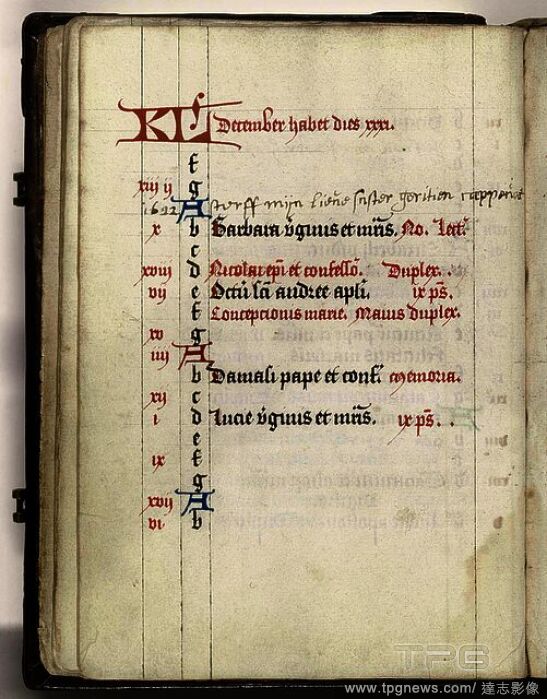 KL December habet dies xxxi.
f
xiii ii g
1612 A storff mijn lieue suster
x b Barbara v̄ginis et mr̄is. No. lect.
c
xviii d Nicolai ep̄i et confesso. Duplex.
vii e Octa sc̄i andree apli. ix ps̄.
f Conceptionis marie. Maius duplex.
xv g
iiii A
b Damasi pape et conf. memoria.
xii c
i d Lucie v̄ginis et mr̄is. ix ps̄.
e
ix f
g
xvii A
vi b
TPG
www.tpgnews.com/ 達志影像